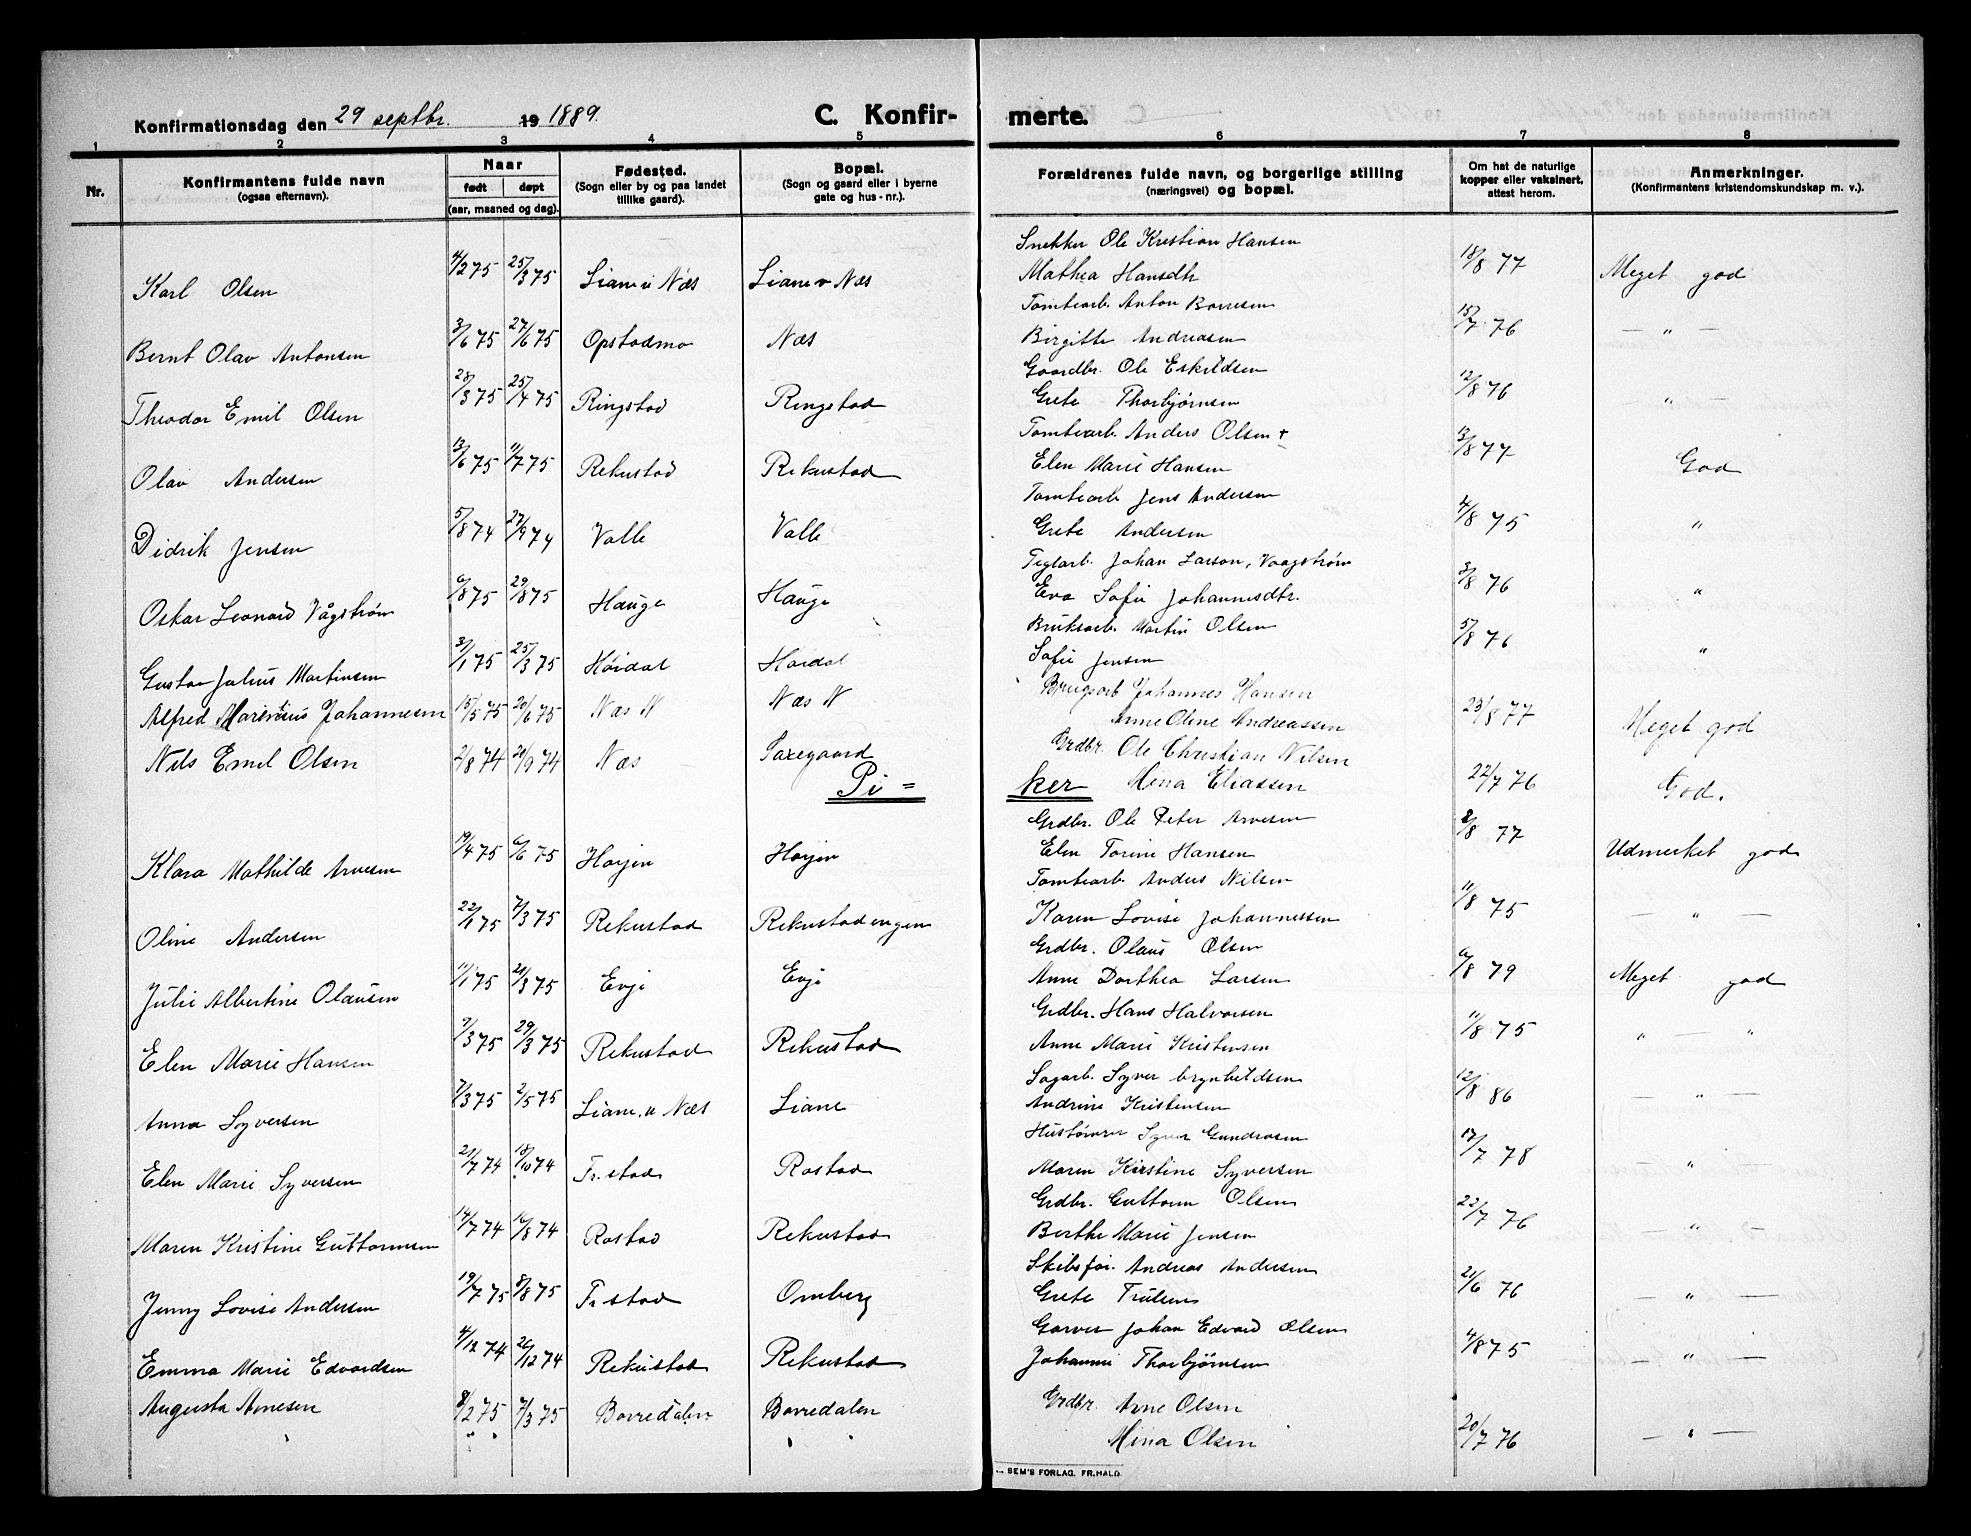 Konfirmationsdag den 29 septbr. 19 1889. C. Konfir- merte.
1 2 3 4 5 6 7 8
Nr. Konfirmantens fulde navn (ogsaa efternavn). Naar født døpt (aar, maaned og dag). Fødested. (Sogn eller by og paa landet tillike gaard). Bopæl. (Sogn og gaard eller i byerne gate og hus-nr.). Forældrenes fulde navn, og borgerlige stilling (næringsvei) og bopæl. Om hat de naturlige kopper eller vaksinert, attest herom. Anmerkninger. (Konfirmantens kristendomskundskap m. v.).
Snekker Ole Kristian Hansen
Karl Olsen 4/2 75 25/3 75 Liane u Næs Liane u Næs Mathea Hansdtr 18/8 77 Meget god
Tomtearb. Anton Borresen
Bernt Olav Antonsen 3/6 75 27/6 75 Opstadmo Næs Birgitte Andreasen 15/7 76 — " —
Gaardbr. Ole Eskildsen
Theodor Emil Olsen 28/3 75 25/4 75 Ringstad Ringstad Grete Thorbjørnsen 12/8 76 " —
Tomtearb. Anders Olsen +
Olav Andersen 13/6 75 11/7 75 Rekustad Rekustad Elen Marie Hansen 3/8 77 God
Tomtearb Jens Andersen
Didrik Jensen 5/8 74 27/9 74 Valle Valle Grete Andersen 4/8 75 "
Teglarb. Johan Larson, Vaagstrøm
Oskar Leonard Vågstrøm 6/8 75 29/8 75 Hauge Hauge Eva Sofie Johannesdtr. 3/8 76 "
Bruksarb. Martin Olsen
Gustav Julius Martinsen 3/1 75 25/3 75 Høidal Høidal Sofie Jensen 5/8 76 "
Brugsarb Johannes Hansen
Alfred Marentius Johannesen 15/5 75 20/6 75 Næs N Næs N Anne Oline Andreassen 23/8 77 Meget god
Grdbr. Ole Christian Nilsen
Nils Emil Olsen 2/8 74 20/9 74 Næs Saxegaard Mina Eliassen 22/7 76 God.
Pi = ker
Grdbr. Ole Peter Arvesen
Klara Mathilde Arvesen 19/4 75 6/6 75 Horjen Horjen Elen Torine Hansen 2/8 77 Udmerket god
Tomtearb. Anders Nilsen
Oline Andersen 22/1 75 7/3 75 Rekustad Rekustadengen Karen Lovise Johannessen 11/8 75 — " —
Grdbr. Olaus Olsen
Julie Albertine Olausen 11/1 75 21/3 75 Evje Evje Anne Dorthea Larsen 6/8 79 Meget god
Grdbr. Hans Halvorsen
Elen Marie Hansen 9/3 75 29/3 75 Rekustad Rekustad Anne Marie Kristensen 11/8 75 " "
Sagarb. Syver brynhildsen
Anna Syversen 7/3 75 2/5 75 Liane, u Næs Liane Andrine Kristensen 12/8 86 — " —
Hustømrer Syver Gundrosen
Elen Marie Syversen 21/7 74 18/10 74 Fr.stad Rostad Maren Kirstine Syversen 17/7 78 "
Grdbr. Guttorm Olsen
Maren Kristine Guttormsen 14/7 74 16/8 74 Rostad Rekustad Berthe Marie Jensen 22/7 76 — " —
Skibsfør. Andreas Andersen
Jenny Lovise Andersen 19/7 75 8/8 75 Fr.stad Omberg Grete Trulsen 21/6 76 — " —
Garver Johan Edvard Olsen
Emma Marie Edvardsen 4/12 74 26/12 74 Rekustad Rekustad Johanne Thorbjørnsen 4/8 75 — " —
Grdbr. Arne Olsen
Augusta Arnesen 8/2 75 7/3 75 Borredalen Borredalen Mina Olsen 20/7 76 — " —
SEM'S FORLAG. FR.HALD